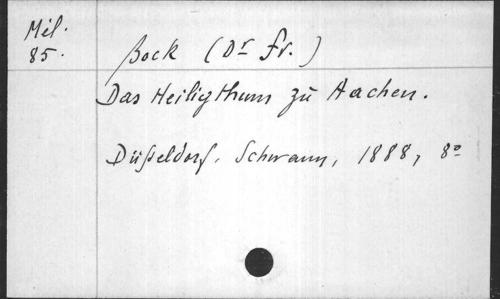 Mil.
85.
Bock (Dr Fr.)
Das Heiligthum zu Aachen.
Düßeldorf, Schwann, 1888, 8°